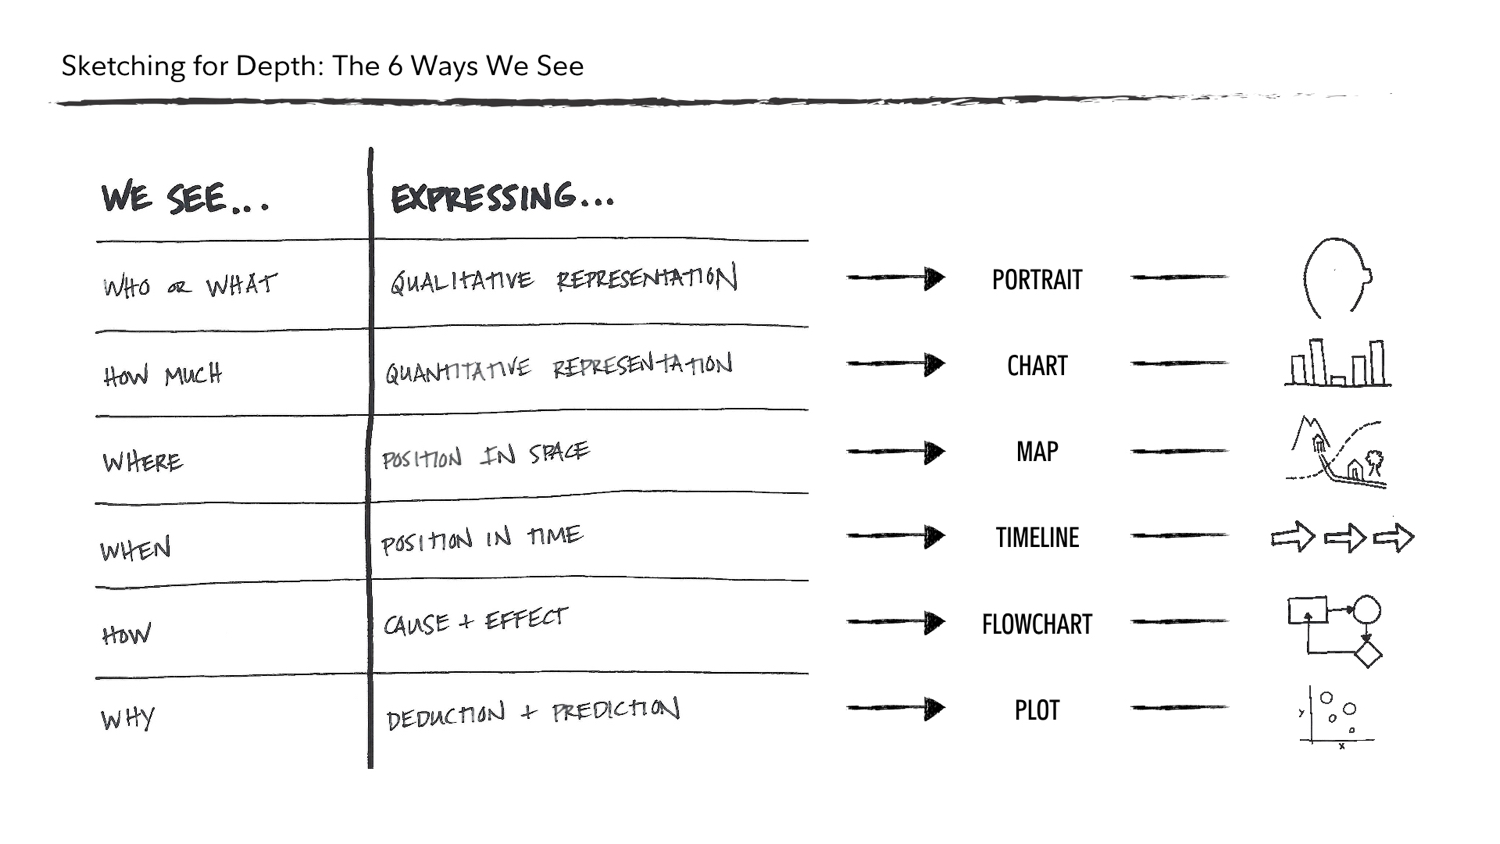 Sketching for Depth: The 6 Ways We See
WE SEE... EXPRESSING...
WHO OR WHAT QUALITATIVE REPRESENTATION PORTRAIT
HOW MUCH QUANTITATIVE REPRESENTATION CHART
WHERE POSITION IN SPACE MAP
WHEN POSITION IN TIME TIMELINE
HOW CAUSE + EFFECT FLOWCHART
WHY DEDUCTION + PREDICTION PLOT
y
x